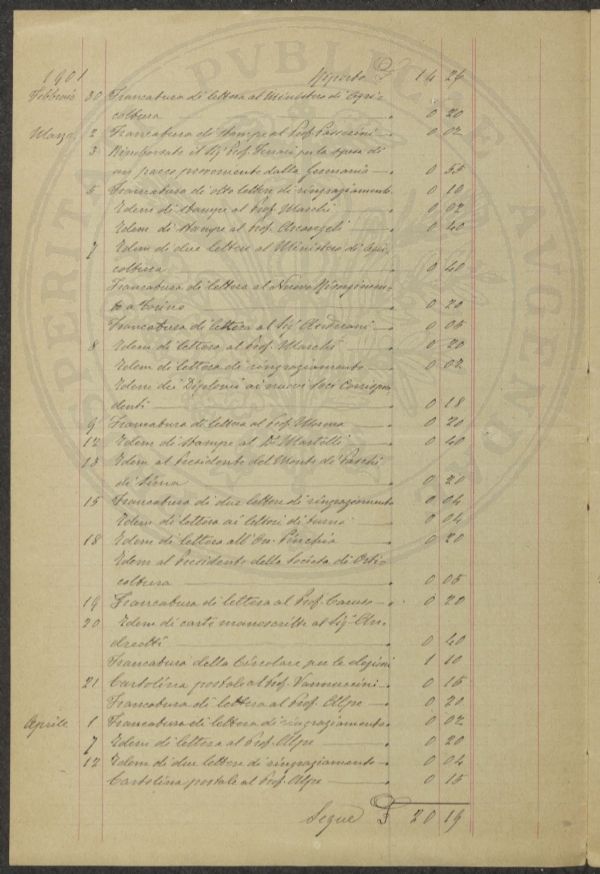 1901 Riporto £ 14 24
Febbraio 30 Francatura di lettera al Ministero di Agri-
coltura 0 20
Marzo 2 Francatura di stampe al Prof. Passerini 0 02
3 Rimborsato il Sig. Prof. per la spesa di
un pacco proveniente dalla Germania 0 55
5 Francatura di otto lettere di ringraziamento 0 10
Idem di stampe al Prof. Marchi 0 02
Idem di stampe al Prof. Arcangeli 0 40
7 Idem di due lettere al Ministero di Agri-
coltura 0 40
Francatura di lettera al Nuovo Risorgimen-
to a Torino 0 20
Francatura di lettera al Sig. Andreani 0 05
8 Idem di lettera al Prof. Marchi 0 20
Idem di lettera di ringraziamento 0 02
Idem dei Diplomi ai nuovi Soci Corrispon
denti 0 18
9 Francatura di lettera al Prof. 0 20
12 Idem di stampe al Dr. Martelli 0 40
13 Idem al Presidente del Monte dei Paschi
di Siena 0 20
15 Francatura di due lettere di ringraziamento 0 04
Idem di lettera ai lettori di turno 0 04
18 Idem di lettera all'On. 0 20
Idem al Presidente della Società di Orti-
coltura 0 05
19 Francatura di lettera al Prof. Caruso 0 20
20 Idem di carte manoscritte al Sig. An-
dreotti 0 40
Francatura della Circolare per le elezioni 1 10
21 Cartolina postale al Prof. Vannuccini 0 15
Francatura di lettera al Prof. Alpe 0 20
Aprile 1 Francatura di lettera di ringraziamento 0 02
7 Idem di lettera al Prof. Alpe 0 20
12 Idem di due lettere di ringraziamento 0 04
Cartolina postale al Prof. Alpe 0 15
Segue £ 20 19